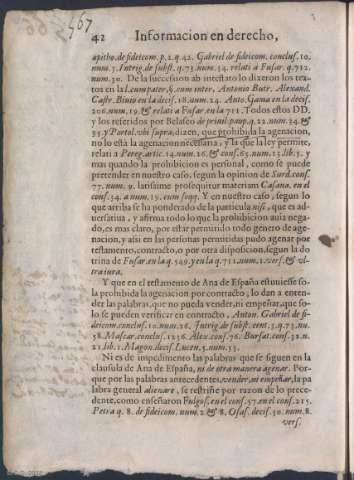 567
42 Informacion en derecho,
apitho. de fideicom. p. 2. q. 42. Gabriel de fideicom. conclus. 10.
num. 7. Intrig. de subst. q. 73. num. 54. relati à Fusar. q. 712.
num. 30. De la succession ab intestato lo dizeron los tex-
tos en la l. cum pater, §. cum inter, Antonio Butr. Alexand.
Castr. Binto en la decis. 18. num. 24. Anto. Gama en la decis.
206. num. 19. & relati a Fusar. en la 711. Todos estos DD.
y los referidos por Belasco de priuil. paup. q. 22. num. 34. &
35. y Portol. vbi supra, dizen, que prohibida la agenacion,
no lo està la agenacion necessaria, y la que la ley permite,
relati à Pereg. artic. 14. num. 16. & cons. 65. num. 15. lib. 5. y
mas quando la prohibicion es personal, como se puede
pretender en nuestro caso, segun la opinion de Surd. cons.
77. num. 9. latissime prosequitur materiam Casana. en el
cons. 54. a num. 19. cum seqq. Y en nuestro caso, segun lo
que arriba se ha ponderado de la particula nisi, que es ad-
uersatiua, y afirma todo lo que la prohibicion auia nega-
do, es mas claro, por estar permitido todo genero de age-
nacion, y assi en las personas permitidas pudo agenar por
testamento, contracto, o por otra disposicion, segun la do
trina de Fusar. en la q. 549. y en la q. 711. num. 1. vers. & vl-
tra iura.
Y que en el testamento de Ana de España estuuiesse so-
la prohibida la agenacion por contracto, lo dan a enten-
der las palabras, que no pueda vender, ni empeñar, que so-
lo se pueden verificar en contracto, Anton. Gabriel de fi-
deicom. conclus. 10. num. 26. Intrig. de subst. cent. 3. q. 73. nu.
58. Mascar. conclus. 1256. Alex. cons. 76. Bursat. cons. 32. n.
21. lib. 1. Magon. decis. Lucen. 5. num. 33.
Ni es de impedimento las palabras que se siguen en la
clausula de Ana de España, ni de otra manera agenar. Por-
que por las palabras antecedentes, vender, ni empeñar, la pa
labra general alienare, se restriñe por razon de lo prece-
dente, como enseñaron Fulgos. en el cons. 57. en el cons. 215.
Petra q. 8. de fideicom. num. 2. & 8. Osas. decis. 30. num. 8.
vers.